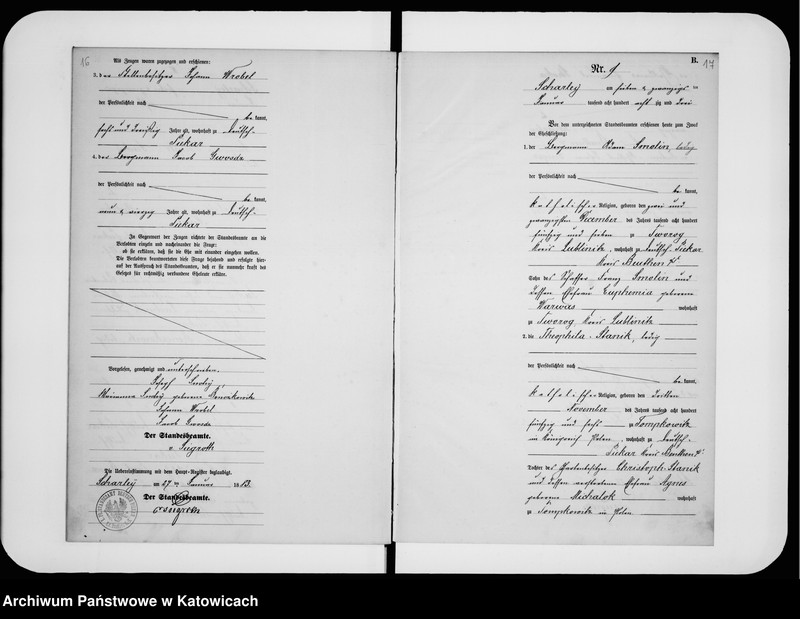 16
Als Zeugen waren zugezogen und erschienen:
3. der Stellenbesitzer Johann Wrobel
der Persönlichkeit nach
be kannt,
sechs und dreißig Jahre alt, wohnhaft zu Deutsch-
Piekar
4. der Bergmann Jacob Gwosdz
der Persönlichkeit nach
be kannt,
neun & vierzig Jahre alt, wohnhaft zu Deutsch-
Piekar
In Gegenwart der Zeugen richtete der Standesbeamte an die
Verlobten einzeln und nacheinander die Frage:
ob sie erklären, daß sie die Ehe mit einander eingehen wollen.
Die Verlobten beantworteten diese Frage bejahend und erfolgte hier-
auf der Ausspruch des Standesbeamten, daß er sie nunmehr kraft des
Gesetzes für rechtmäßig verbundene Eheleute erkläre.
Vorgelesen, genehmigt und unterschrieben.
Joseph
Marianna geborene
Johann Wrobel
Jacob Gwosdz
Der Standesbeamte.
v
Die Uebereinstimmung mit dem Haupt-Register beglaubigt.
Scharley am 27 ten Januar 18 83.
Der Standesbeamte.
B.
17
Nr. 9
Scharley am sieben & zwanzigs ten
Januar tausend acht hundert acht zig und drei
Vor dem unterzeichneten Standesbeamten erschienen heute zum Zweck
der Eheschließung:
1. der Bergmann Adam Smolin, ledig
der Persönlichkeit nach
be kannt,
katholischer Religion, geboren den zwei und
zwanzigsten December des Jahres tausend acht hundert
fünfzig und sieben zu Tworog
Kreis Lublinitz, wohnhaft zu Deutsch-Piekar
Kreis Beuthen
Sohn des Franz Smolin und
dessen Ehefrau Euphemia geborene
Warwas wohnhaft
zu Tworog, Kreis Lublinitz
2. die Theophila Stanik, ledig
der Persönlichkeit nach
be kannt,
katholischer Religion, geboren den dritten
November des Jahres tausend acht hundert
fünfzig und sechs zu Tompkowitz
im Königreich Polen, wohnhaft zu Deutsch-
Piekar Kreis Beuthen
Tochter des Christoph Stanik
und dessen verstorbene Ehefrau Agnes
geborene Michalok wohnhaft
zu Tompkowitz in Polen
Archiwum Państwowe w Katowicach